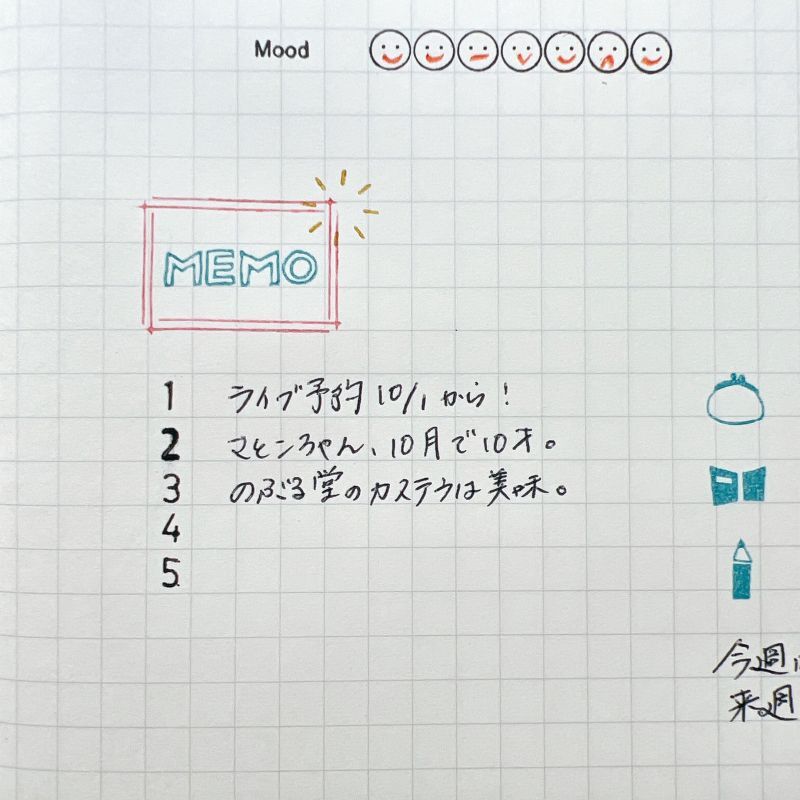 Mood
MEMO
1 ライブ予約 10/1 から！
2 さとこちゃん、10月で10才。
3 のぶる堂のカステラは美味。
4
5
今週は
来週